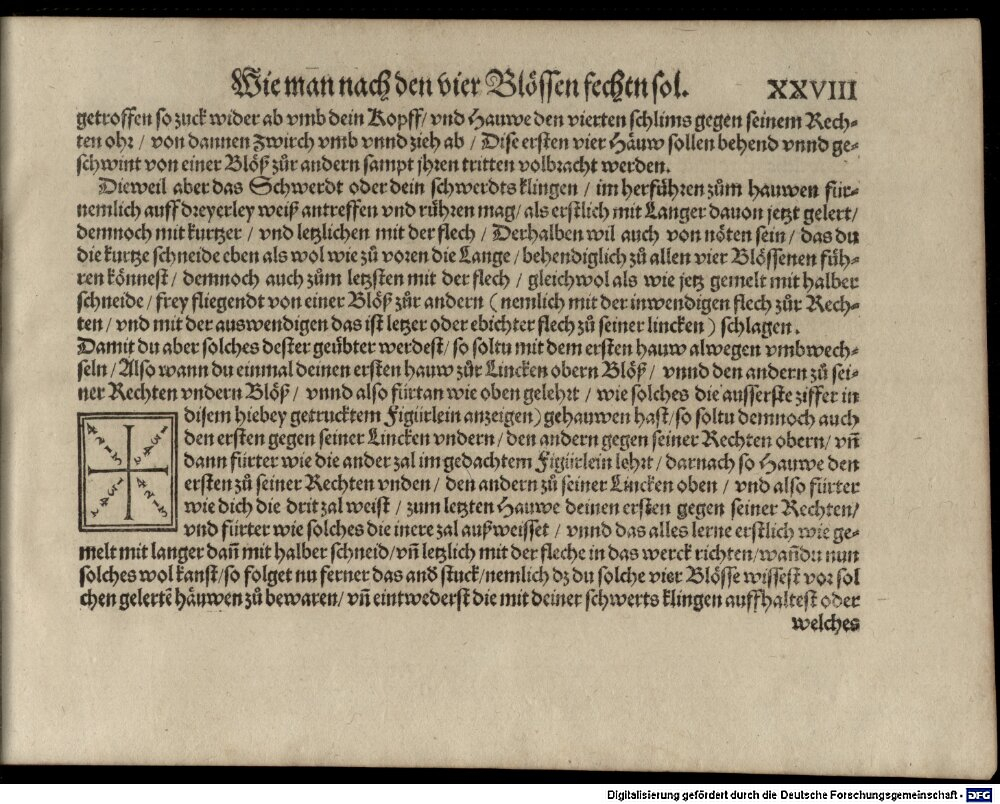 Wie man nach den vier Blössen fechtn sol. XXVIII
getroffen so zuck wider ab vmb dein Kopff/ vnd Hauwe den vierten schlims gegen seinem Rech-
ten ohr / von dannen Zwirch vmb vnnd zieh ab / Dise ersten vier Häuw sollen behend vnnd ge-
schwint von einer Blöß zůr andern sampt jhren tritten volbracht werden.
Dieweil aber das Schwerdt oder dein schwerdts klingen / im herführen zům hauwen für-
nemlich auff dreyerley weiß antreffen vnd rühren mag/ als erstlich mit Langer dauon jetzt gelert/
demnoch mit kurtzer / vnd letzlichen mit der flech / Derhalben wil auch von nöten sein / das du
die kurtze schneide eben als wol wie zů voren die Lange / behendiglich zů allen vier Blössenen füh-
ren könnest / demnoch auch zům letzsten mit der flech / gleichwol als wie jetz gemelt mit halber
schneide / frey fliegendt von einer Blöß zůr andern ( nemlich mit der inwendigen flech zůr Rech-
ten / vnd mit der auswendigen das ist letzer oder ebichter flech zů seiner lincken ) schlagen.
Damit du aber solches dester geübter werdest/ so soltu mit dem ersten hauw alwegen vmbwech-
seln / Also wann du einmal deinen ersten hauw zůr Lincken obern Blöß / vnnd den andern zů sei-
ner Rechten vndern Blöß / vnnd also fürtan wie oben gelehrt / wie solches die ausserste ziffer in
disem hiebey getrucktem Figürlein anzeigen) gehauwen hast/ so soltu demnoch auch
den ersten gegen seiner Lincken vndern / den andern gegen seiner Rechten obern/ vn̄
dann fürter wie die ander zal im gedachtem Figürlein lehrt / darnach so Hauwe den
ersten zů seiner Rechten vnden / den andern zů seiner Lincken oben / vnd also fürter
wie dich die drit zal weist / zum letzten Hauwe deinen ersten gegen seiner Rechten/
vnd fürter wie solches die inere zal außweisset / vnnd das alles lerne erstlich wie ge-
melt mit langer dan̄ mit halber schneid/ vn̄ letzlich mit der fleche in das werck richten/ wan̄ du nun
solches wol kanst/ so folget nu ferner das and stuck/ nemlich dz du solche vier Blösse wissest vor sol
chen gelertē häuwen zů bewaren/ vn̄ eintwederst die mit deiner schwerts klingen auffhaltest oder
welches
Digitalisierung gefördert durch die Deutsche Forschungsgemeinschaft - DFG